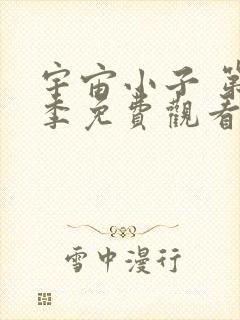 宇宙小子 第
季免費觀看
雪中漫行